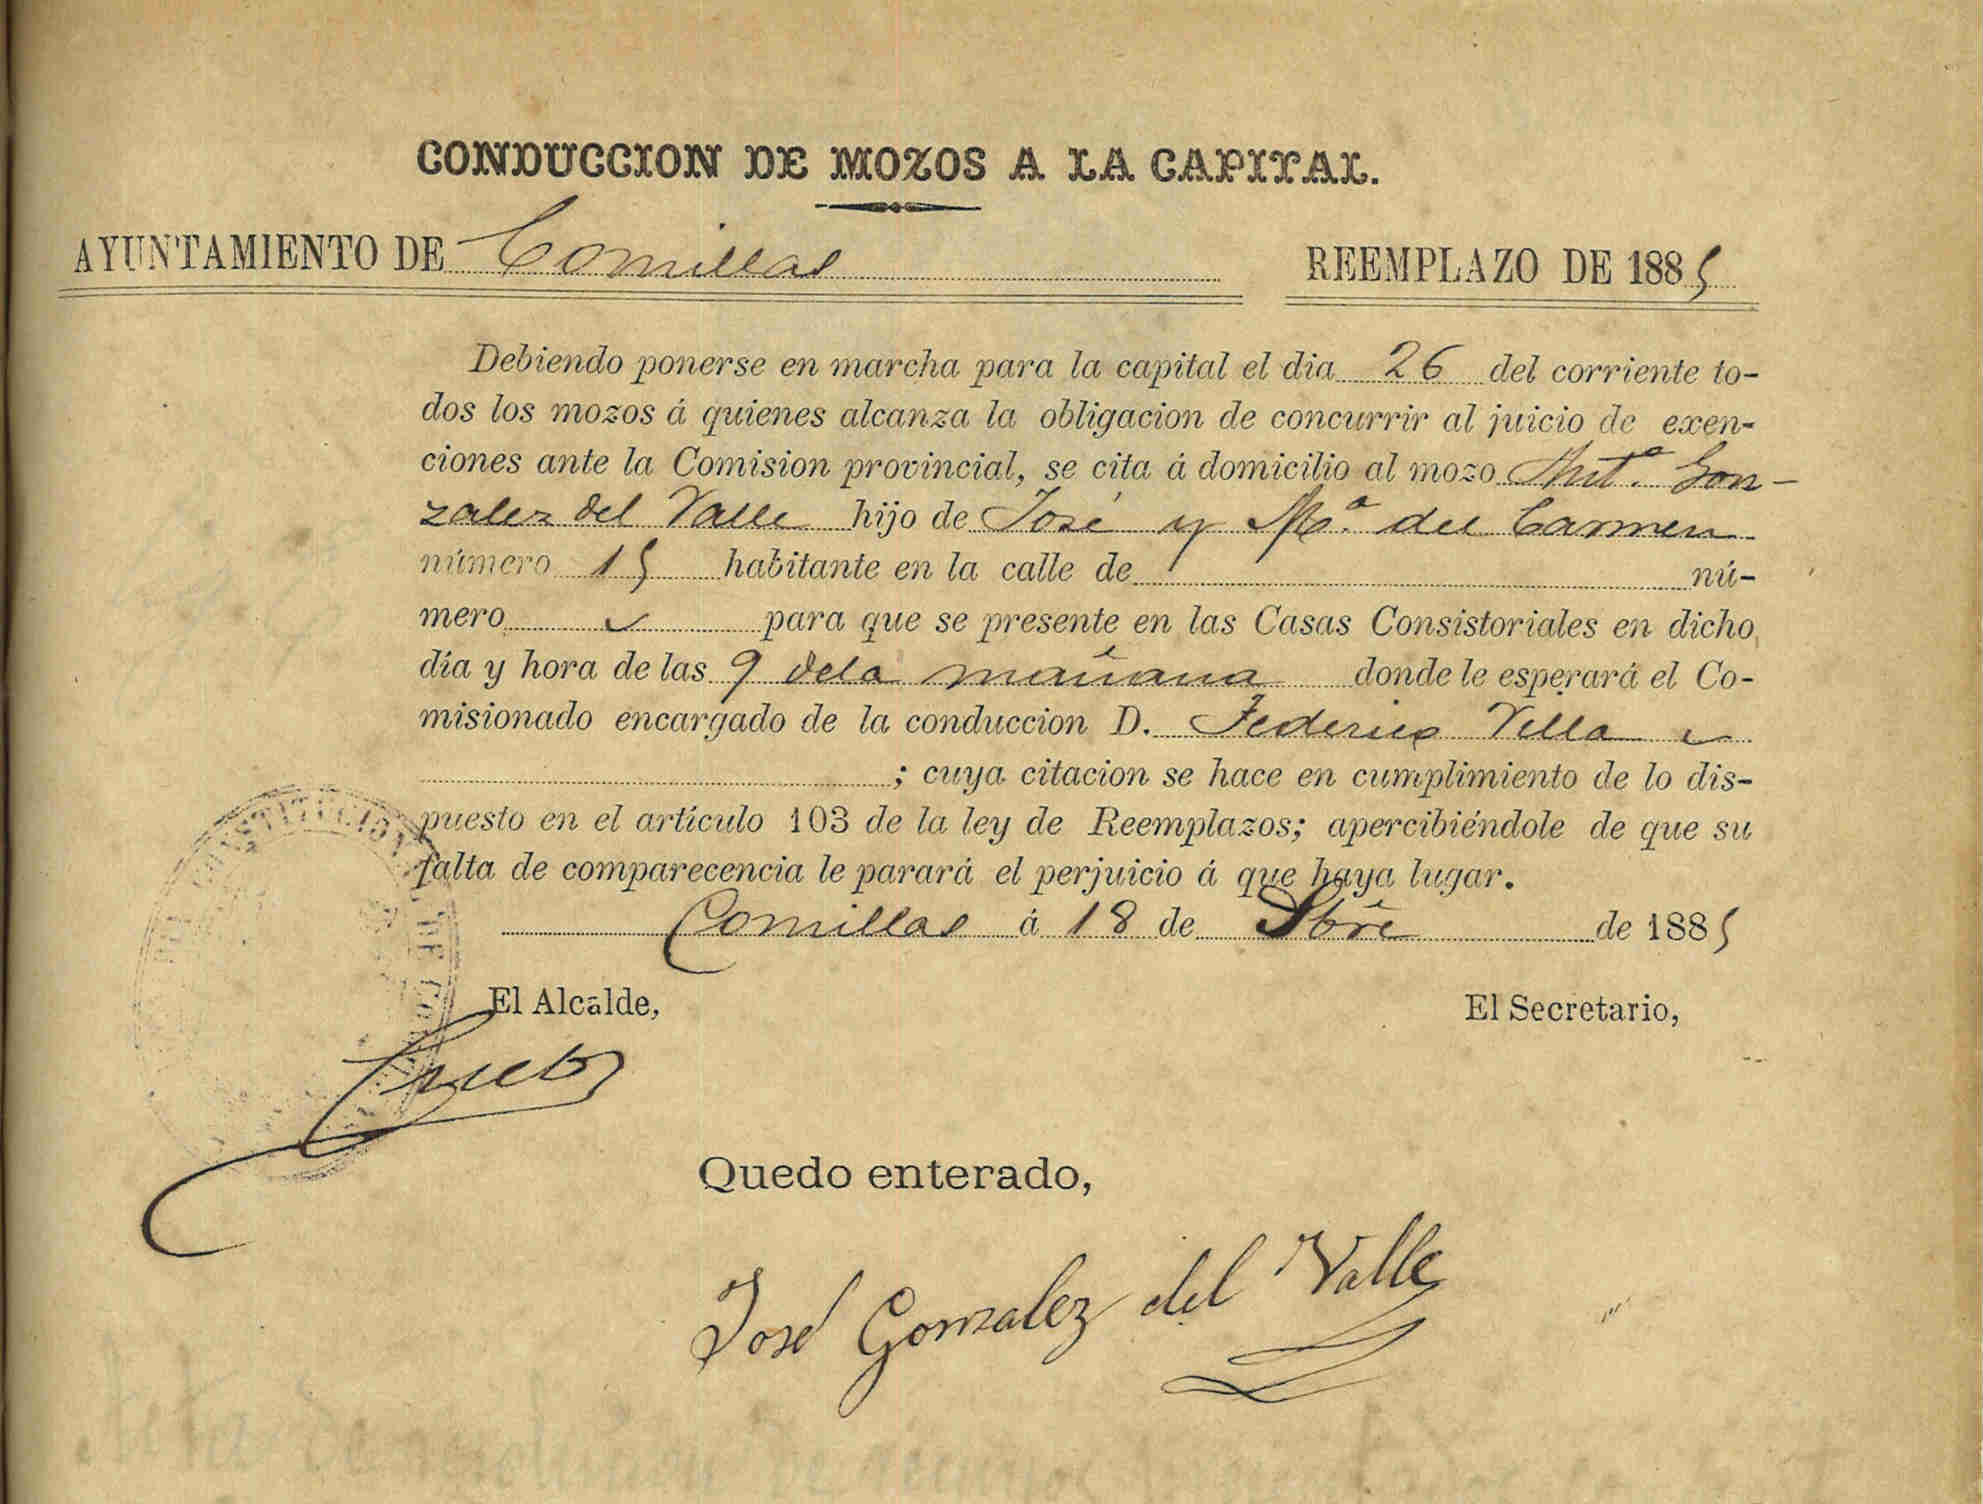 CONDUCCION DE MOZOS A LA CAPITAL.
AYUNTAMIENTO DE Comillas REEMPLAZO DE 1885
Debiendo ponerse en marcha para la capital el dia 26 del corriente to-
dos los mozos á quienes alcanza la obligacion de concurrir al juicio de exen-
ciones ante la Comision provincial, se cita á domicilio al mozo Antº. Gon-
zalez del Valle hijo de José y Mª. del Carmen
número 15 habitante en la calle de nú-
mero para que se presente en las Casas Consistoriales en dicho
día y hora de las 9 de la mañana donde le esperará el Co-
misionado encargado de la conduccion D. Federico Villa
; cuya citacion se hace en cumplimiento de lo dis-
puesto en el artículo 103 de la ley de Reemplazos; apercibiéndole de que su
falta de comparecencia le parará el perjuicio á que haya lugar.
Comillas á 18 de de 1885
El Alcalde, El Secretario,
Quedo enterado,
José Gonzalez del Valle